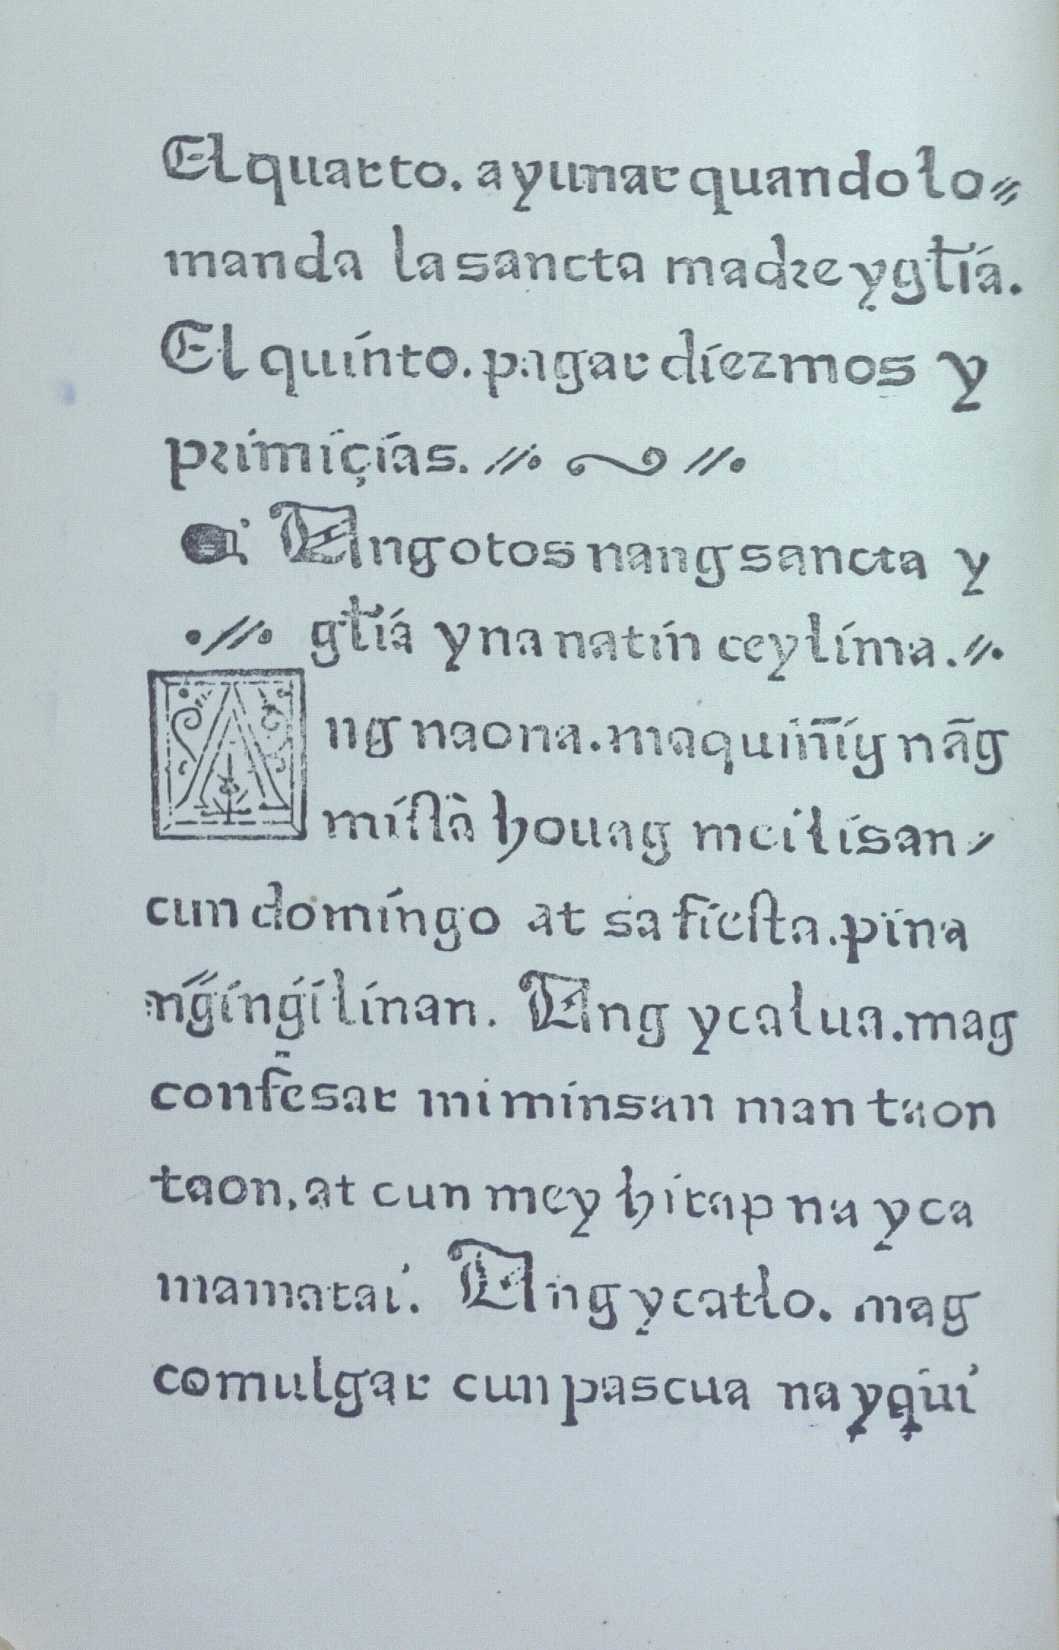 El quarto. ayunar quando lo⸗
manda la sancta madre ygłīa.
El quinto. pagar diezmos y
primiçias. //. ~ //.
Ang otos nang sancta y
.//. głīa yna natin ceylima. //.
Ang naona. maquiniīg nãg
missã houag meilisan⸗
cun domingo at sa fiesta. pina
ngingilinan. Ang ycalua. mag
confesar miminsan man taon
taon, at cun mey hirap na yca
mamatai. Ang ycatlo. mag
comulgar cun pascua na yqui